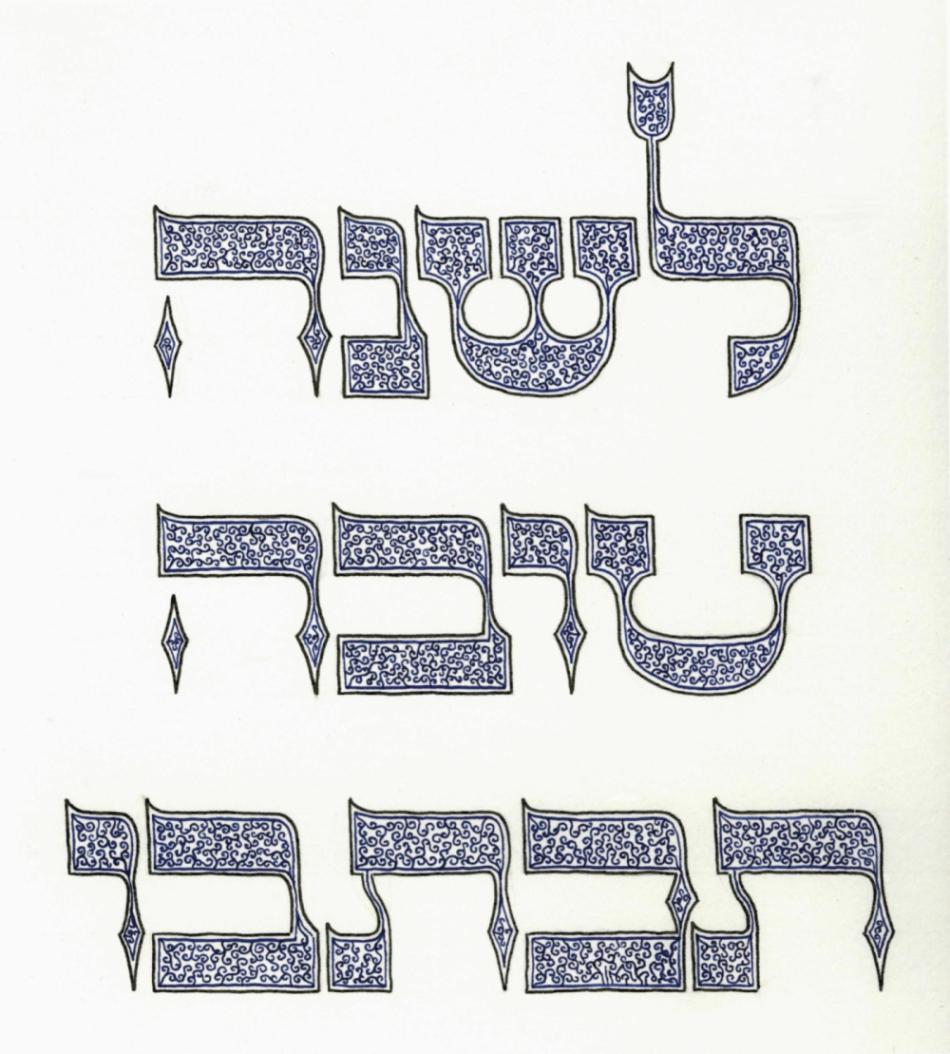 לשנה
טובה
תכתבו